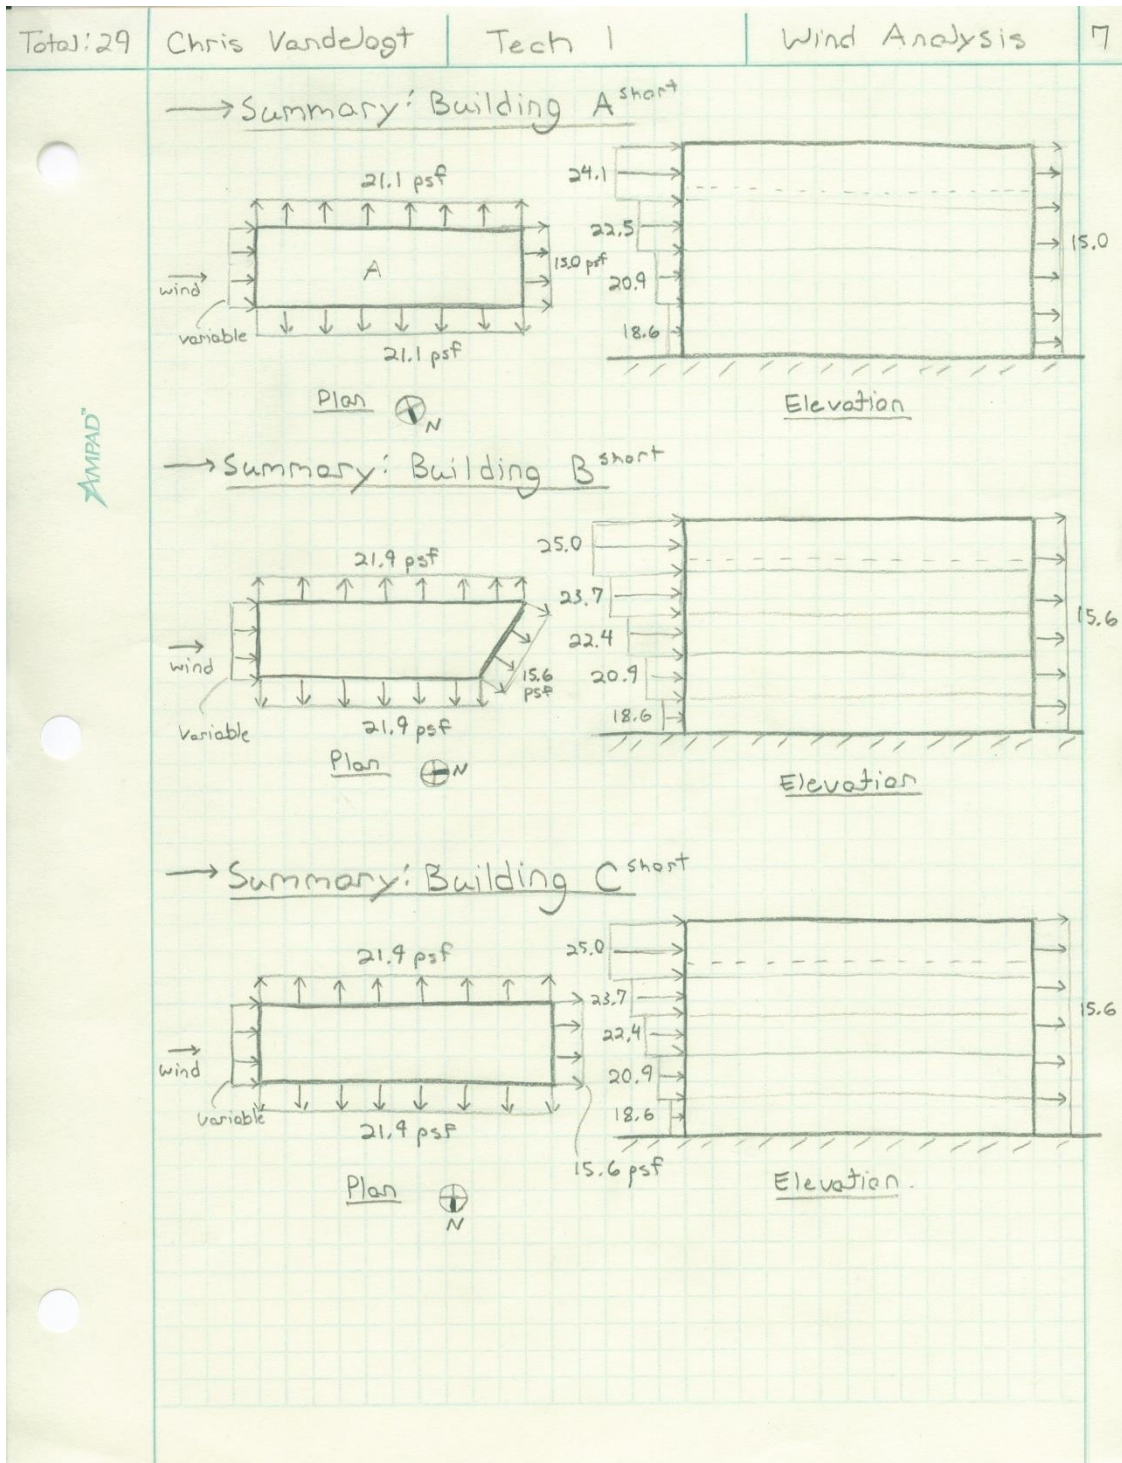 Total: 29 Chris Vandelogt Tech 1 Wind Analysis 7
→ Summary: Building A short
21.1 psf
A
15.0 psf
wind
variable
21.1 psf
Plan
N
24.1
22.5
20.9
18.6
15.0
Elevation
AMPAD™
→ Summary: Building B short
21.9 psf
wind
15.6
psf
Variable
21.9 psf
Plan
N
25.0
23.7
22.4
20.9
18.6
15.6
Elevation
→ Summary: Building C short
21.9 psf
wind
variable
21.9 psf
15.6 psf
Plan
N
25.0
23.7
22.4
20.9
18.6
15.6
Elevation.